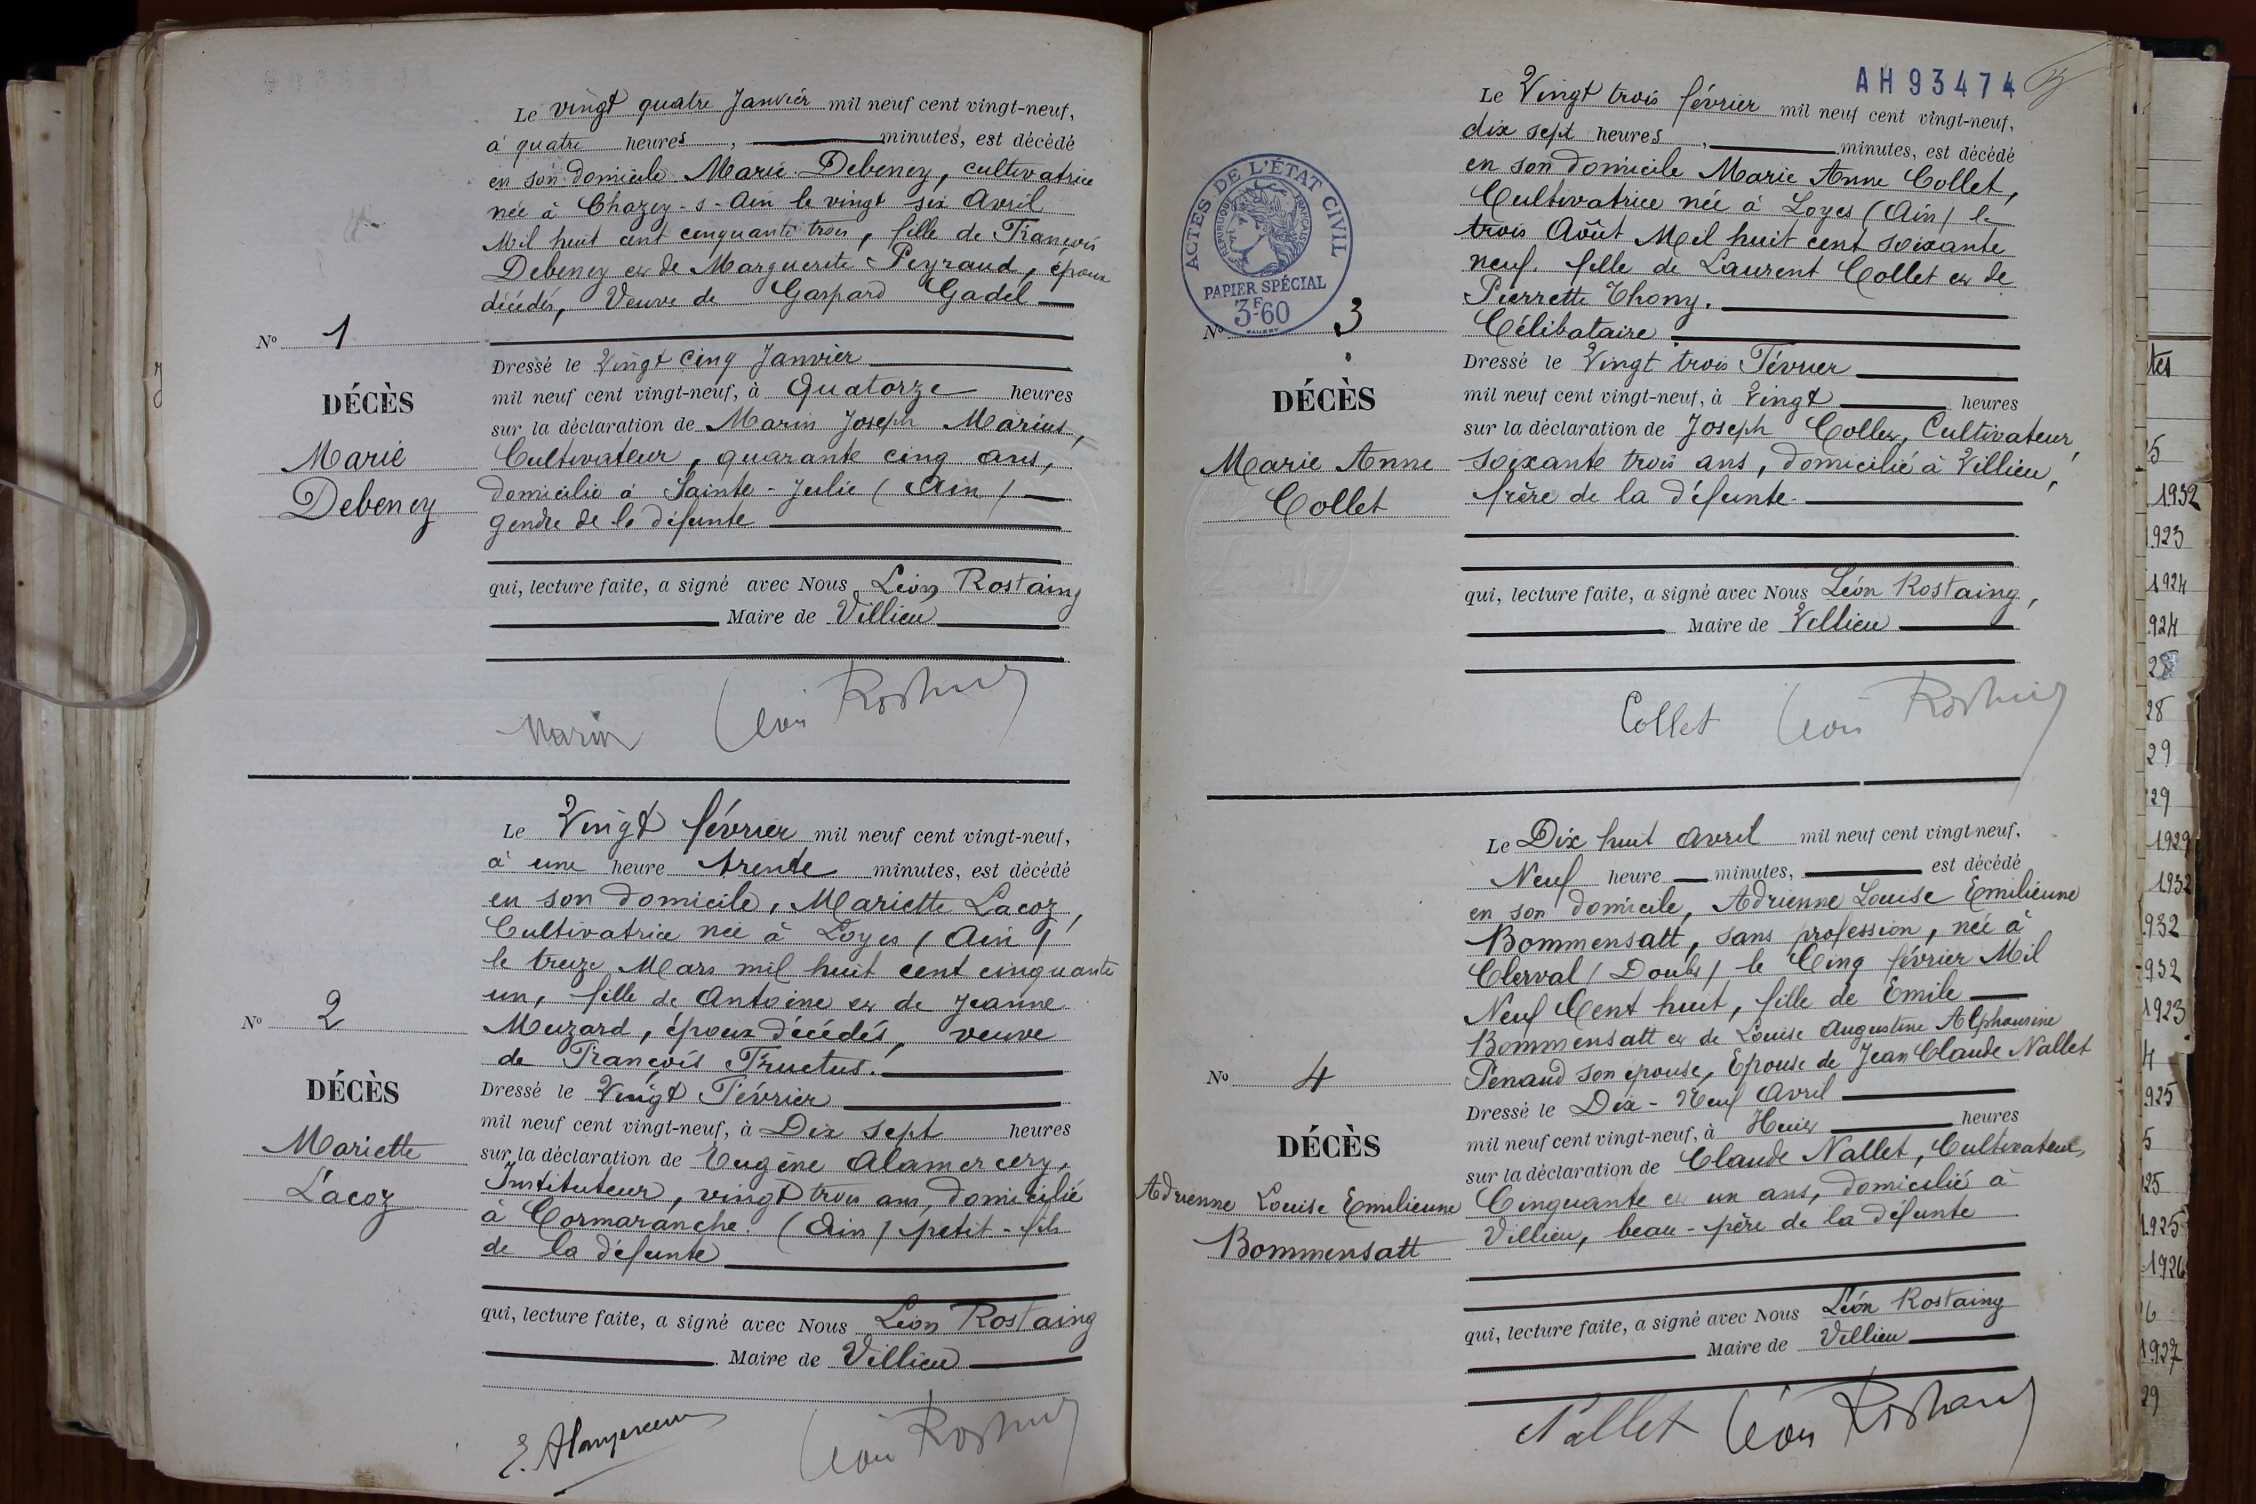 Le vingt quatre Janvier mil neuf cent vingt-neuf,
à quatre heures, minutes, est décédé
en son domicile Marie Debeney, cultivatrice
née à Chazey-s-Ain le vingt six Avril
Mil huit cent cinquante trois, fille de François
Debeney et de Marguerite Peyraud, époux
décédés, Veuve de Gaspard Gadel
N° 1
DÉCÈS
Marie
Debeney
Dressé le Vingt cinq Janvier
mil neuf cent vingt-neuf, à Quatorze heures
sur la déclaration de Marin Joseph Marius,
Cultivateur, quarante cinq ans,
domicilié à Sainte-Julie (Ain)
gendre de la défunte
qui, lecture faite, a signé avec Nous Léon Rostaing
Maire de Villieu
Marin Léon Rostaing
Le Vingt février mil neuf cent vingt-neuf,
à une heure trente minutes, est décédé
en son domicile, Mariette Lacoz,
Cultivatrice née à Loyes (Ain)
le treize Mars mil huit cent cinquante
un, fille de Antoine et de Jeanne
Muzard, époux décédés, veuve
de François Fructus.
N° 2
DÉCÈS
Mariette
Lacoz
Dressé le Vingt Février
mil neuf cent vingt-neuf, à Dix sept heures
sur la déclaration de Eugène Alamercery,
Instituteur, vingt trois ans, domicilié
à Cormaranche (Ain) petit-fils
de la défunte
qui, lecture faite, a signé avec Nous Léon Rostaing
Maire de Villieu
E. Alamercery Léon Rostaing
AH93474
Le Vingt trois février mil neuf cent vingt-neuf,
dix sept heures, minutes, est décédé
en son domicile Marie Anne Collet,
Cultivatrice née à Loyes (Ain) le
trois Août Mil huit cent soixante
neuf. fille de Laurent Collet et de
Pierrette Thony.
Célibataire
ACTES DE L'ÉTAT CIVIL
RÉPUBLIQUE FRANÇAISE
PAPIER SPÉCIAL
3F60
N° 3
DÉCÈS
Marie Anne
Collet
Dressé le Vingt trois Février
mil neuf cent vingt-neuf, à Vingt heures
sur la déclaration de Joseph Collet, Cultivateur,
soixante trois ans, domicilié à Villieu,
frère de la défunte
qui, lecture faite, a signé avec Nous Léon Rostaing,
Maire de Villieu
Collet Léon Rostaing
Le Dix huit avril mil neuf cent vingt neuf,
Neuf heure minutes, est décédé
en son domicile, Adrienne Louise Emilienne
Bommensatt, sans profession, née à
Clerval (Doubs) le Cinq février Mil
Neuf Cent huit, fille de Emile
Bommensatt et de Louise Augustine Alphonsine
Penaud son epouse, Epouse de Jean Claude Nallet
N° 4
DÉCÈS
Adrienne Louise Emilienne
Bommensatt
Dressé le Dix-Neuf Avril
mil neuf cent vingt-neuf, à Huit heures
sur la déclaration de Claude Nallet, Cultivateur,
Cinquante et un ans, domicilié à
Villieu, beau-père de la défunte
qui, lecture faite, a signé avec Nous Léon Rostaing
Maire de Villieu
Nallet Léon Rostaing
tes
5
1932
1923
1924
924
28
28
29
29
1929
1932
932
932
1923
4
925
5
25
1925
1926
6
1927
29